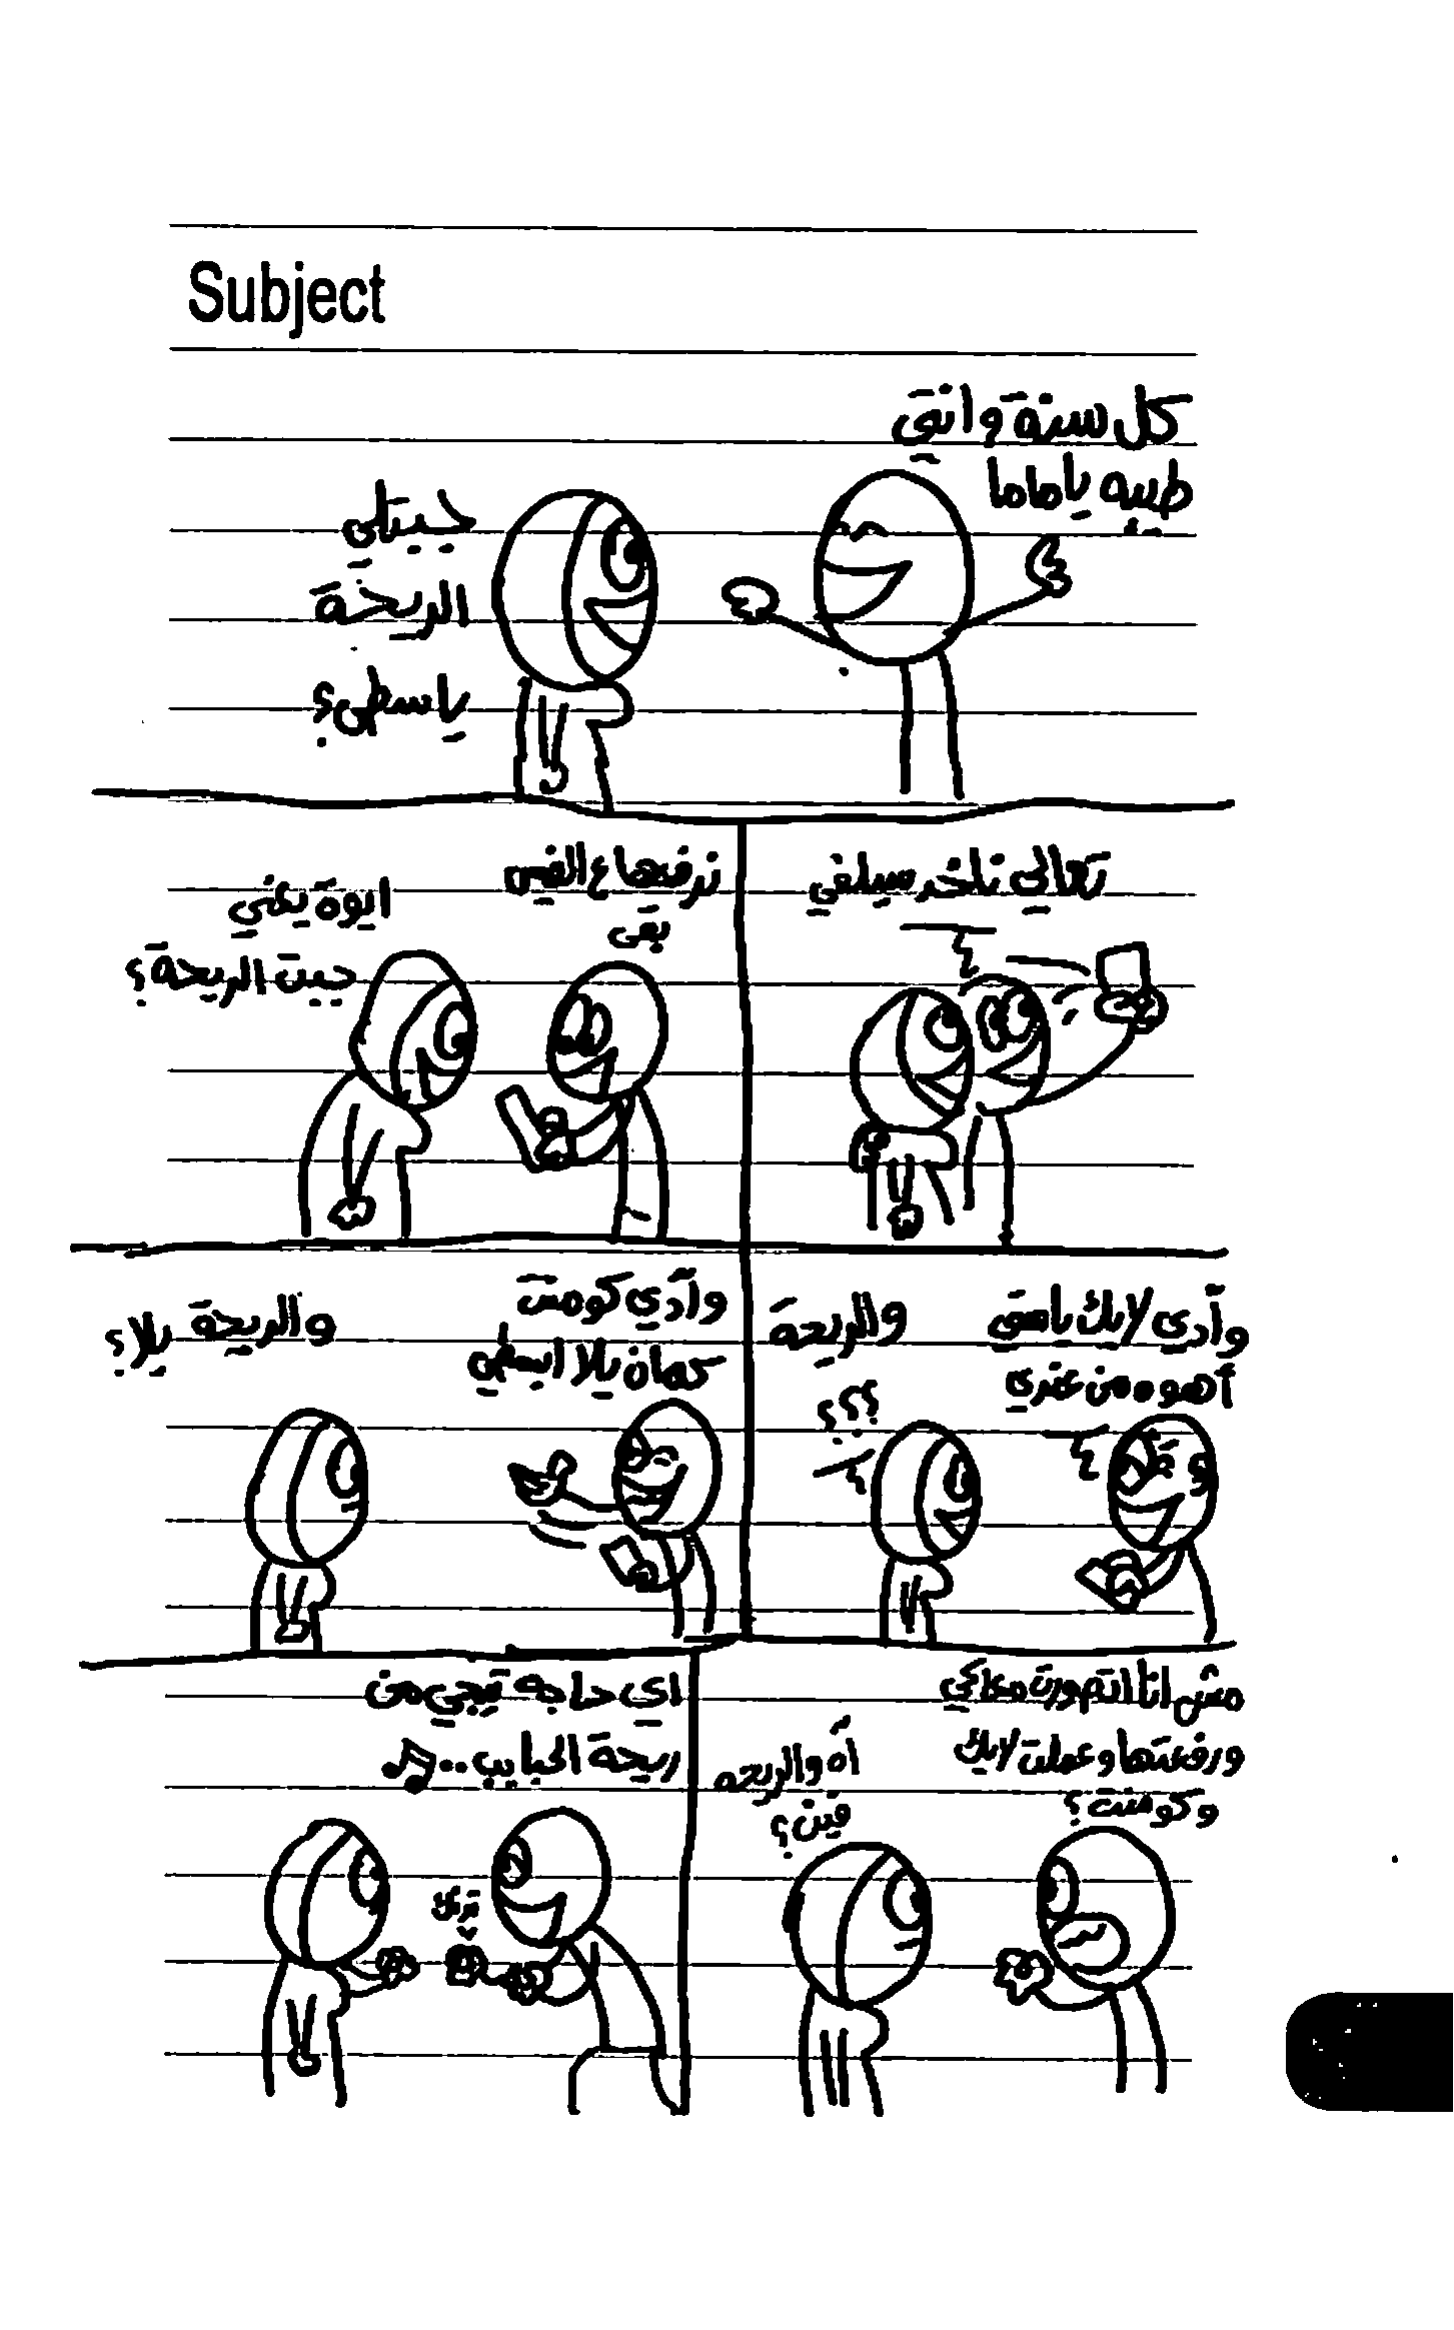 Subject
كل سنة وانتي
طيبه ياماما
جيبتلي
الريحة
ياسطى؟
تعالي ناخد سيلفي
نرفعها ع الفيس
بقى
ايوة يعني
جبت الريحة؟
وآدي لايك ياستي
أهوه من عندي
والريحة
؟؟؟
وآدي كومنت
كمان يلا ابسطي
والريحة يلا؟
مش انا اتصورت معاكي
ورفعتها وعملت لايك
وكومنت؟
آه والريحه
فين؟
اي حاجه تيجي من
ريحة الحبايب..